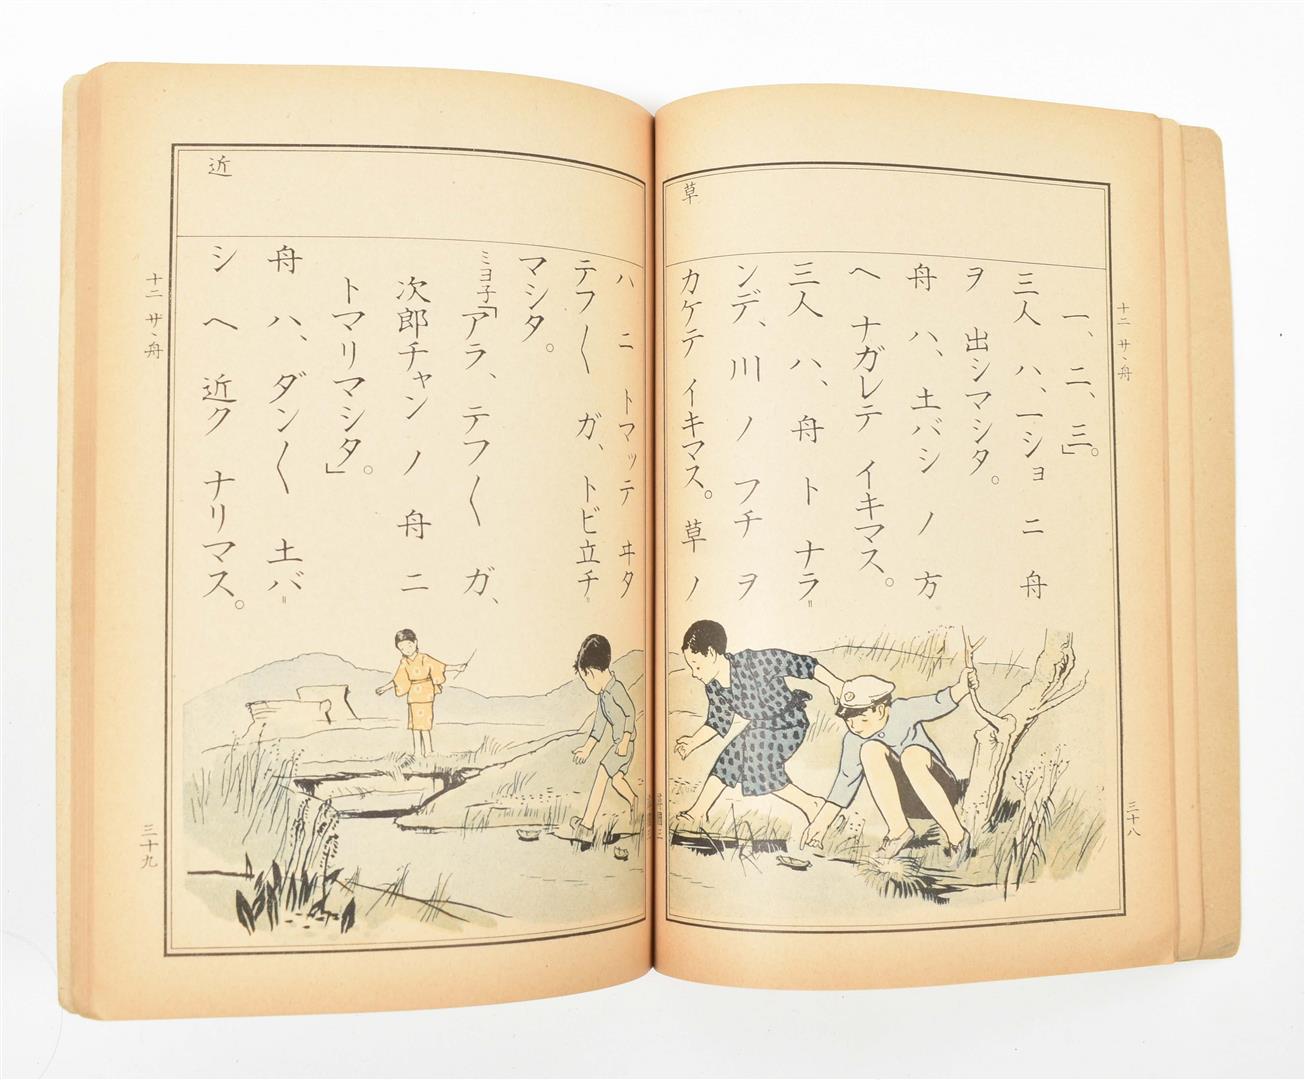 草
一、二、三。」
三人 ハ、一ショ ニ 舟
ヲ 出シマシタ。
舟 ハ、土バシ ノ 方
ヘ ナガレテ イキマス。
三人 ハ、舟 ト ナラ〃
ンデ、川 ノ フチ ヲ
カケテ イキマス。草 ノ
十二 サヽ舟
三十八
近
ハ ニ トマッテ ヰタ
テフ〱 ガ、トビ立チ〃
マシタ。
ミヨ子「アラ、テフ〱 ガ、
次郎チャン ノ 舟 ニ
トマリマシタ。」
舟 ハ、ダン〱 土バ〃
シ ヘ 近ク ナリマス。
十二 サヽ舟
三十九